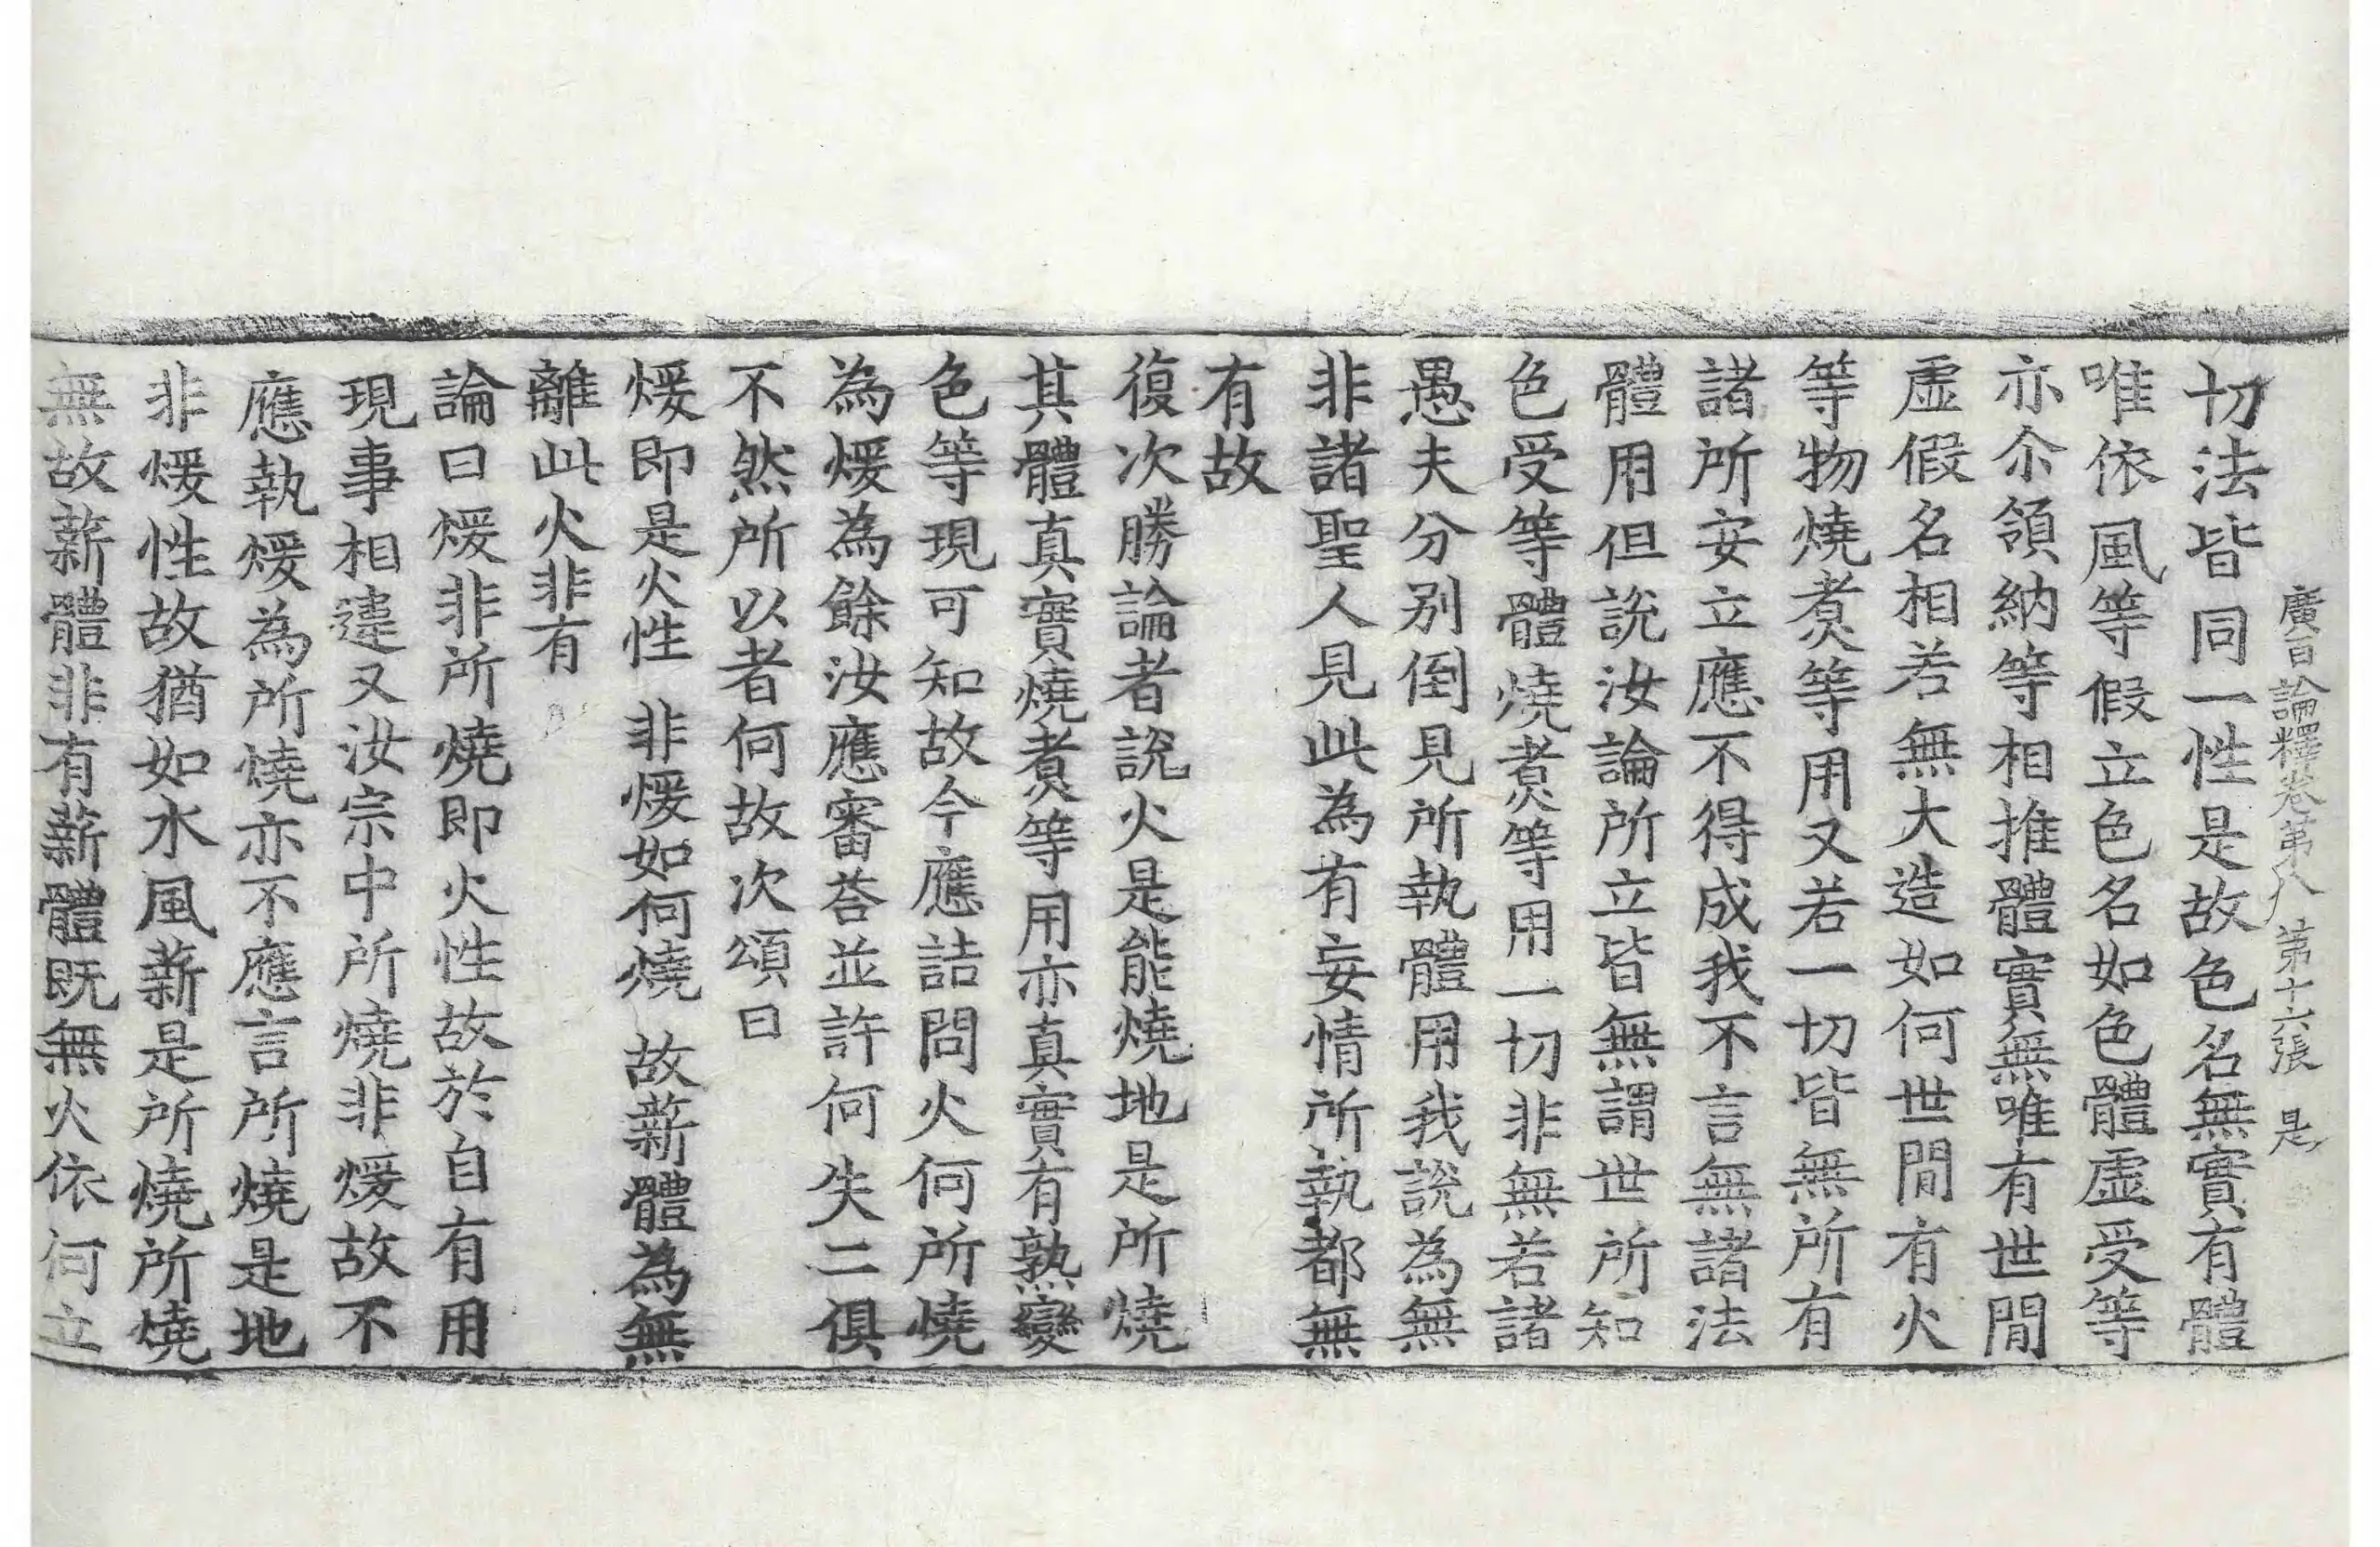 廣百論釋卷第八 第十六張 是
切法皆同一性是故色名無實有體
唯依風等假立色名如色體虛受等
亦尒領納等相推體實無唯有世閒
虛假名相若無大造如何世閒有火
等物燒煑等用又若一切皆無所有
諸所安立應不得成我不言無諸法
體用但說汝論所立皆無謂世所知
色受等體燒煑等用一切非無若諸
愚夫分別倒見所執體用我說為無
非諸聖人見此為有妄情所執都無
有故
復次勝論者說火是能燒地是所燒
其體真實燒煑等用亦真實有熟變
色等現可知故今應詰問火何所燒
為煖為餘汝應審荅並許何失二俱
不然所以者何故次頌曰
煖即是火性 非煖如何燒 故薪體為無
離此火非有
論曰煖非所燒即火性故於自有用
現事相違又汝宗中所燒非煖故不
應執煖為所燒亦不應言所燒是地
非煖性故猶如水風薪是所燒所燒
無故薪體非有薪體既無火依何立